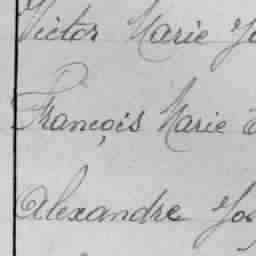 Victor Marie
François Marie
Alexandre